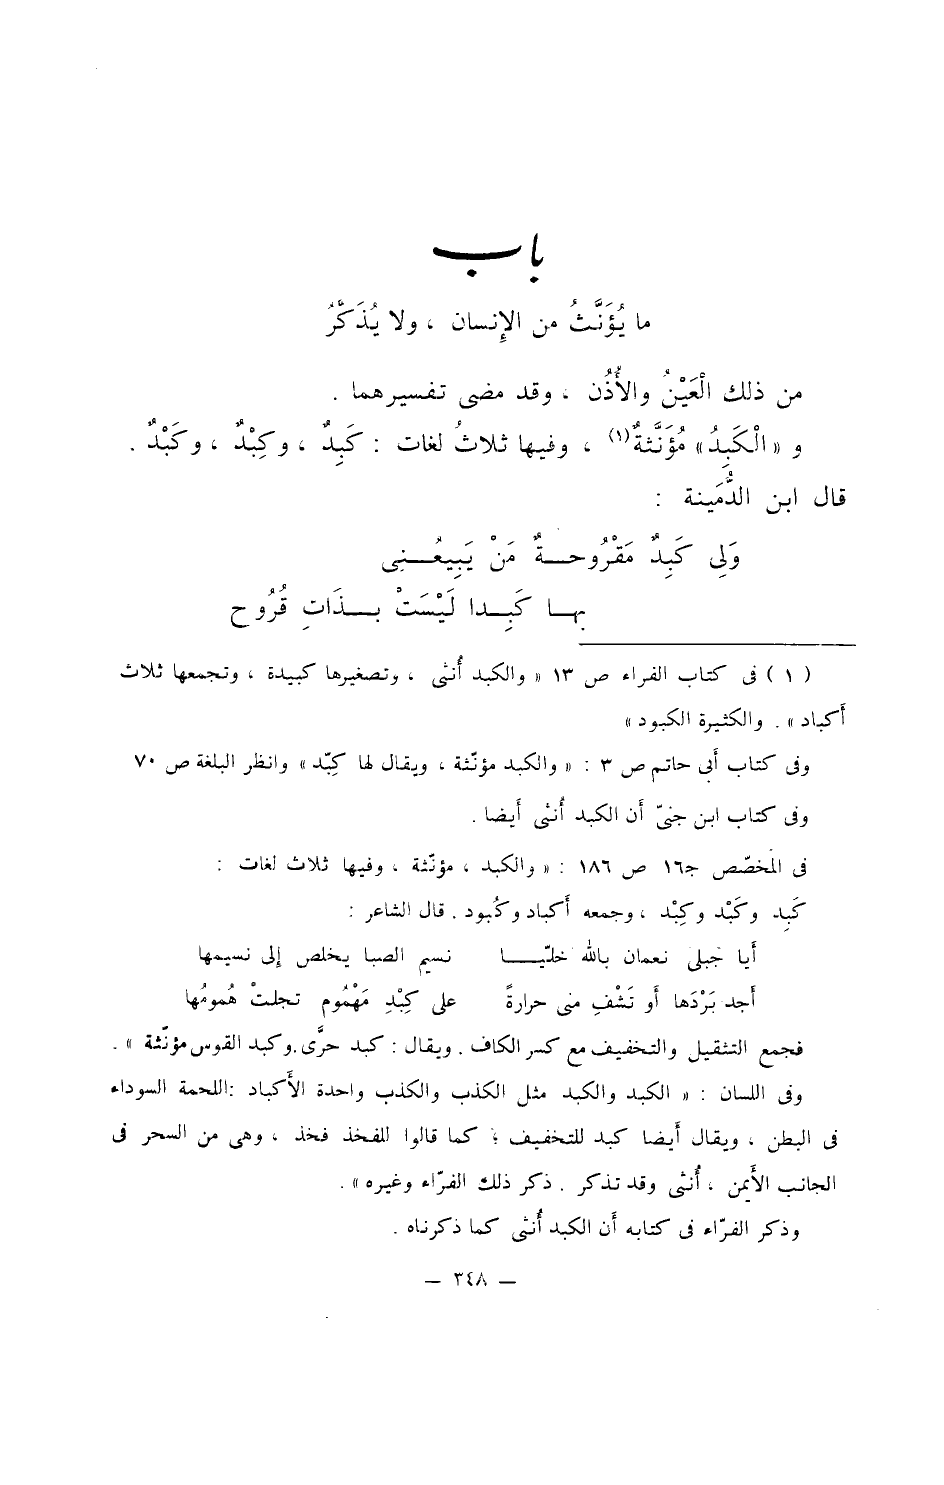 باب
ما يُؤَنَّثُ من الإِنسان ، ولا يُذَكَّرُ
من ذلك الْعَيْنُ والأُذُن ، وقد مضى تفسيرهما .
و « الْكَبِدُ » مُؤَنَّثةٌ(١) ، وفيها ثلاثُ لغات : كَبِدٌ ، وكِبْدٌ ، وكَبْدٌ .
قال ابن الدُّمَينة :
وَلِي كَبِدٌ مَقْرُوحــةٌ مَنْ يَبِيعُــنِى
بهــا كَبِــدا لَيْسَتْ بــذَاتِ قُرُوحِ
( ١ ) فى كتاب الفراء ص ١٣ « والكبد أُنثى ، وتصغيرها كبيدة ، وتجمعها ثلاث
أكباد » . والكثيرة الكبود »
وفى كتاب أبى حاتم ص ٣ : « والكبد مؤنّثة ، ويقال لها كِبّد » وانظر البلغة ص ٧٠
وفى كتاب ابن جنىّ أن الكبد أُنثى أيضا .
فى المخصّص ج١٦ ص ١٨٦ : « والكبد ، مؤنّثة ، وفيها ثلاث لغات :
كَبِد وكَبْد وكِبْد ، وجمعه أكباد وكُبود . قال الشاعر :
أيا جبلى نعمان بالله خلّيــا نسيم الصبا يخلص إلى نسيمها
أجد بَرْدَها أو تَشْفِ منى حرارةً على كِبْدِ مَهْمُومٍ تجلتْ هُمومُها
فجمع التثقيل والتخفيف مع كسر الكاف . ويقال : كبد حرَّى.وكبد القوس مؤنّثة » .
وفى اللسان : « الكبد والكبد مثل الكذب والكذب واحدة الأَكباد :اللحمة السوداء
فى البطن ، ويقال أيضا كبد للتخفيف ؛ كما قالوا للفخذ فخذ ، وهى من السحر فى
الجانب الأَيمن ، أُنثى وقد تذكر . ذكر ذلك الفرّاء وغيره » .
وذكر الفرّاء فى كتابه أن الكبد أُنثى كما ذكرناه .
— ٣٤٨ —